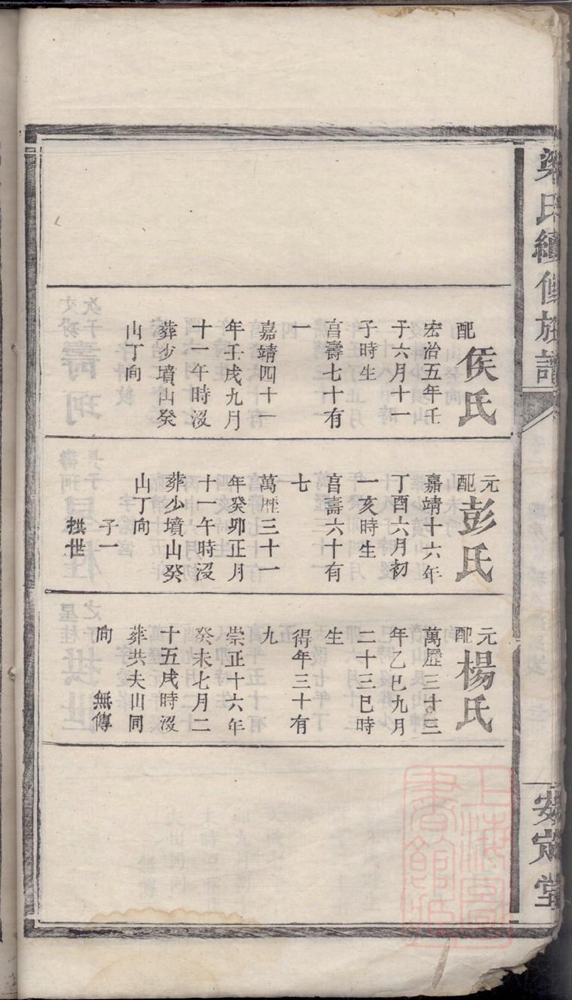 梁氏續修族譜
安定堂
配侯氏
宏治五年壬
子六月十一
子時生
享壽七十有
一
嘉靖四十一
年壬戌九月
十一午時沒
葬少墳山癸
山丁向
元配彭氏
嘉靖十六年
丁酉六月初
一亥時生
享壽六十有
七
萬歷三十一
年癸卯正月
十一午時沒
葬少墳山癸
山丁向
子一
拱世
元配楊氏
萬歷三十三
年乙巳九月
二十三巳時
生
得年三十有
九
崇正十六年
癸未七月二
十五戌時沒
葬共夫山同
向 無傳